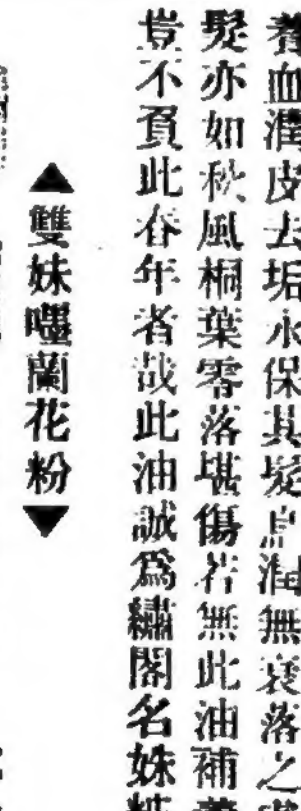 養血潤皮去垢永保其髮烏潤無衰落之
髮亦如秋風桐葉零落堪傷若無此油補養
豈不負此春年者哉此油誠爲繡閣名姝
▲雙妹嚜蘭花粉▼